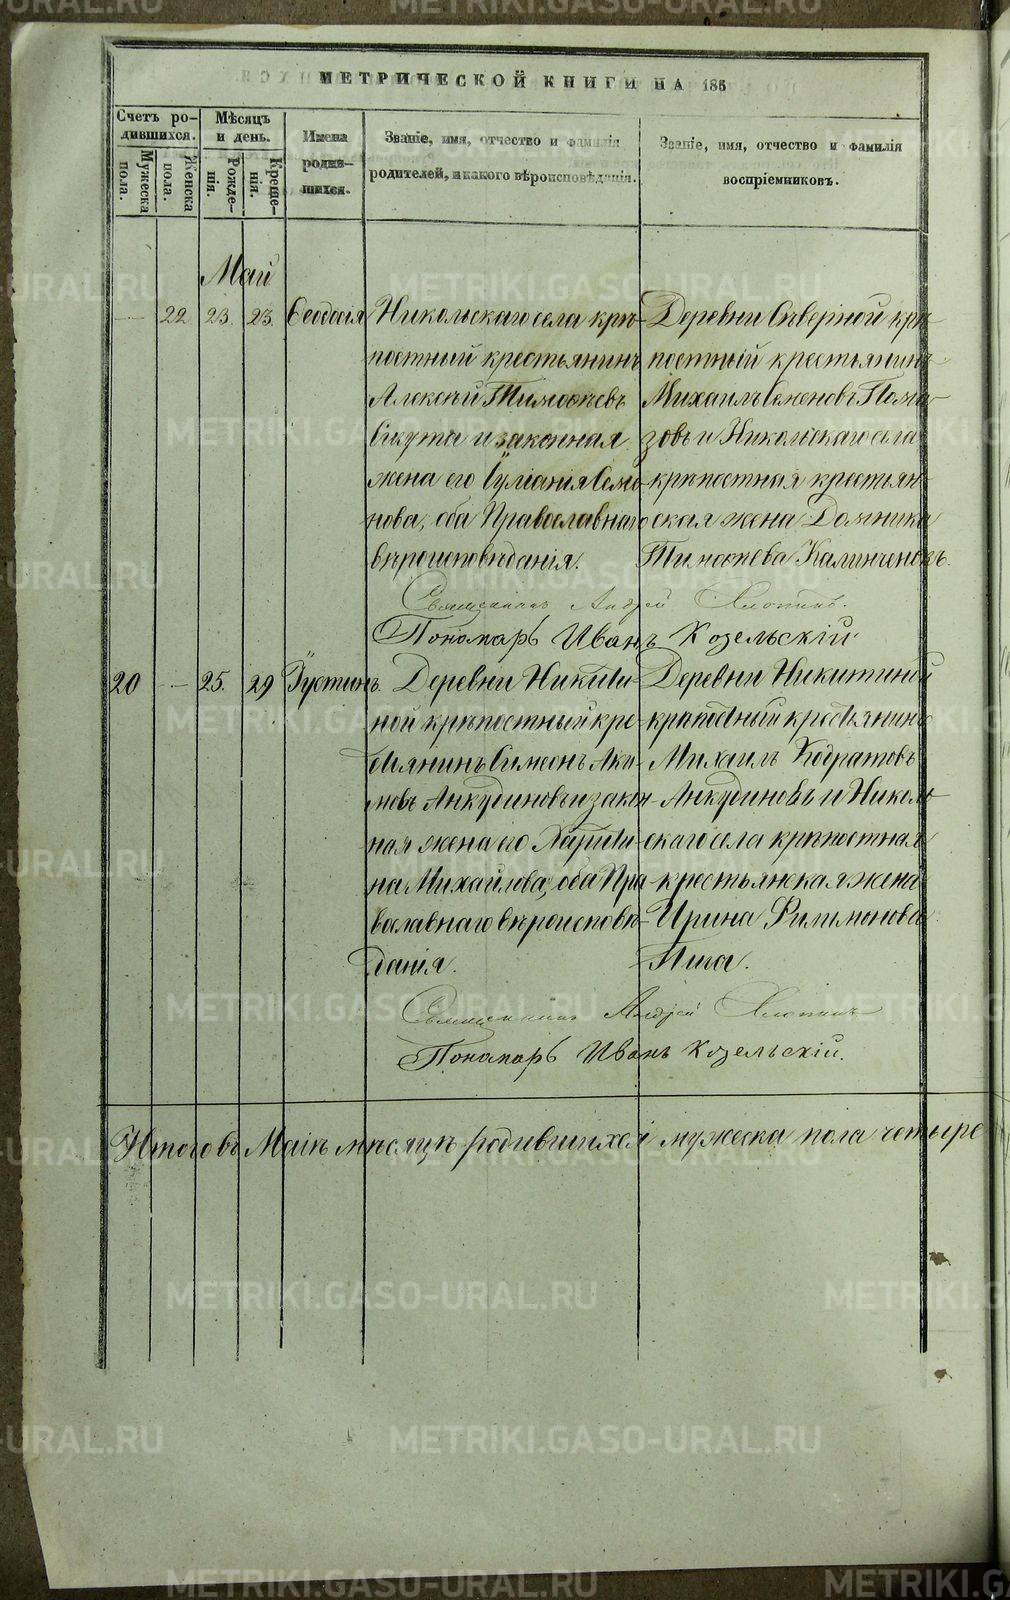 МЕТРИЧЕСКОЙ КНИГИ НА 185
Счетъ родившихся.
Мужеска пола.
Женска пола.
Мѣсяцъ и день.
Рожденія.
Крещенія.
Имена родившихся.
Званіе, имя, отчество и фамилія родителей, и какого вѣроисповѣданія.
Званіе, имя, отчество и фамилія воспріемниковъ.
Май
— 22 23. 23. Ѳеодосія
Никольскаго села крѣ-
постный крестьянинъ
Алексѣй Тимоѳѣевъ
и законная
жена его Іуліанія Семе-
нова, оба Православнаго
вѣроисповѣданія.
Деревни Сѣверной крѣ-
постный крестьянинъ
Михаилъ Семеновъ Пома-
зовъ и Никольскаго села
крѣпостная крестьян-
ская жена Домника
Тимоѳеева Калинченковъ.
Священникъ Андрей
Пономарь Иванъ Козельскій
20 — 25. 29 Іустинъ.
Деревни Никити-
ной крѣпостный кре-
стьянинъ Симеонъ Аки-
мовъ Анкудиновъ и закон-
ная жена его Харити-
на Михайлова, оба Пра-
вославнаго вѣроисповѣ-
данія.
Деревни Никитиной
крѣпостный крестьянинъ
Михаилъ Кодратовъ
Анкудиновъ и Николь-
скаго села крѣпостная
крестьянская жена
Ирина Филимонова
Священникъ Андрей
Пономарь Иванъ Козельскій.
Итого въ Маіѣ мѣсяцѣ родившихся мужеска пола четыре
METRIKI.GASO-URAL.RU